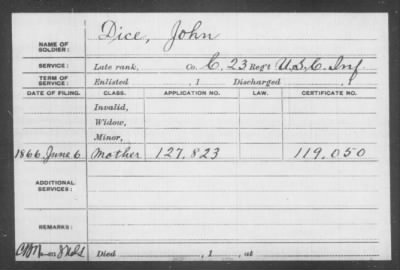 NAME OF SOLDIER: Dice, John
SERVICE: Late rank, Co. C. 23 Reg't U.S.C. Inf
TERM OF SERVICE: Enlisted , 1 Discharged , 1
DATE OF FILING. CLASS. APPLICATION NO. LAW. CERTIFICATE NO.
Invalid,
Widow,
Minor,
1866, June 6 Mother 127.823 119.050
ADDITIONAL SERVICES:
REMARKS:
Died , 1 , at